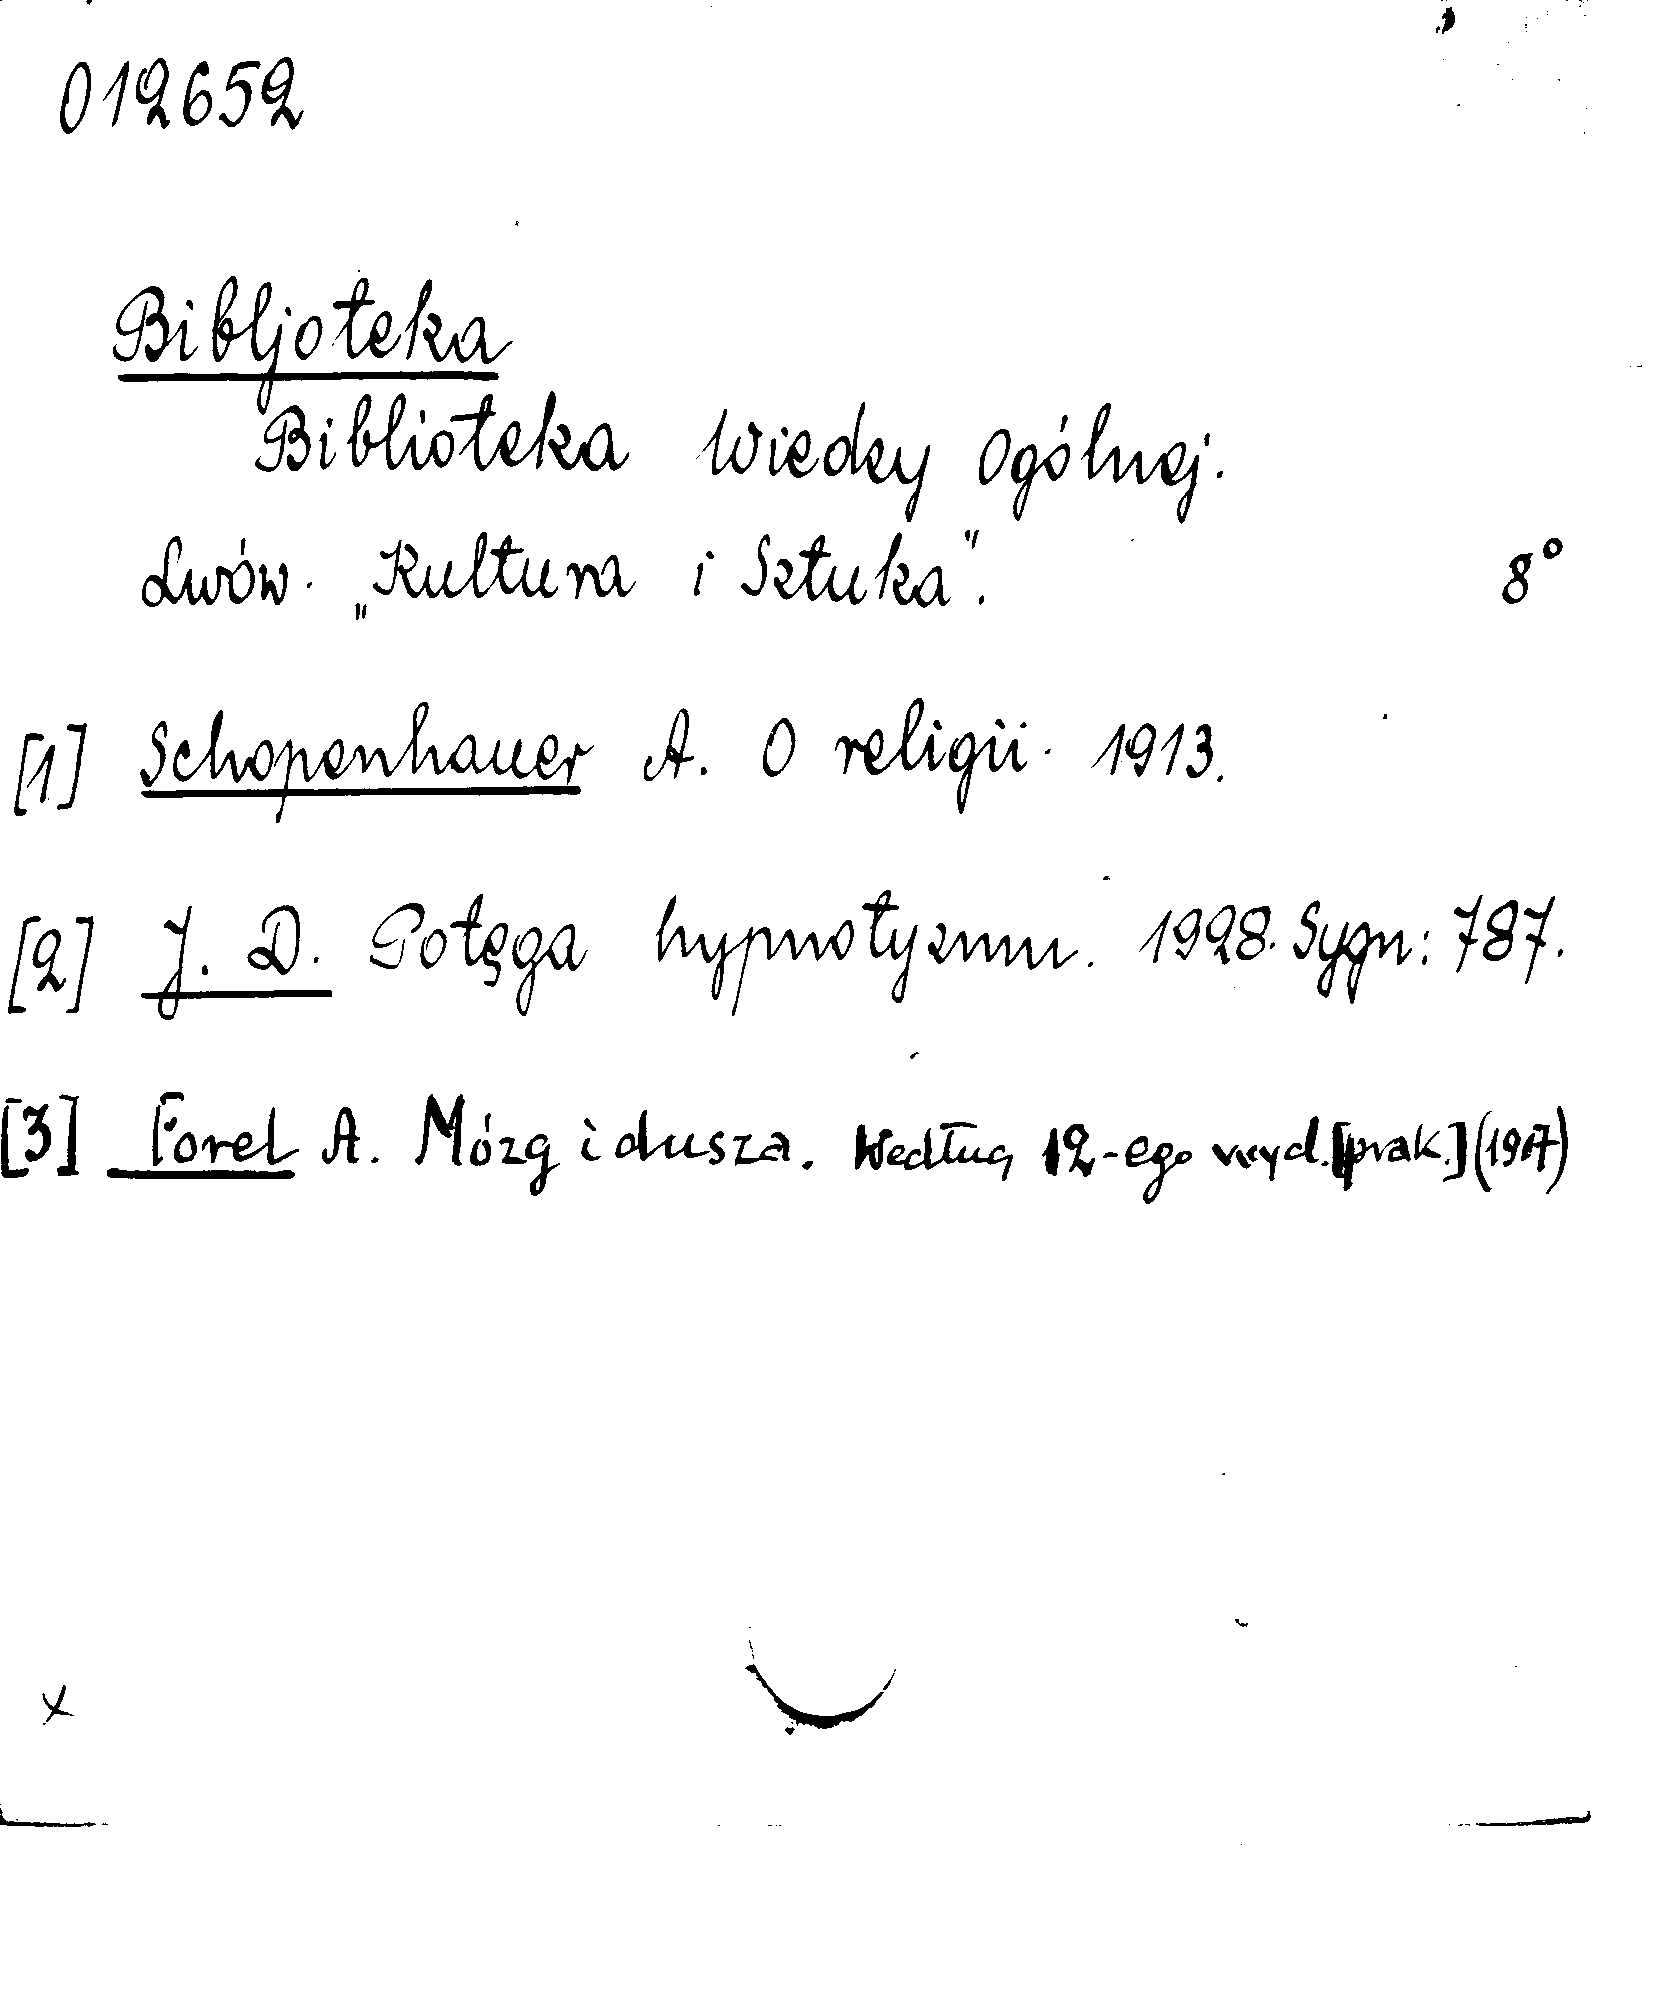 012652
Bibljoteka
Biblioteka Wiedzy Ogólnej.
Lwów. „Kultura i Sztuka”. 8°
[1] Schopenhauer A. O religii. 1913.
[2] J. D. Potęga hypnotyzmu. 1928. Sygn: 787.
[3] Forel A. Mózg i dusza. Według 12-ego wyd. [prak.]
x